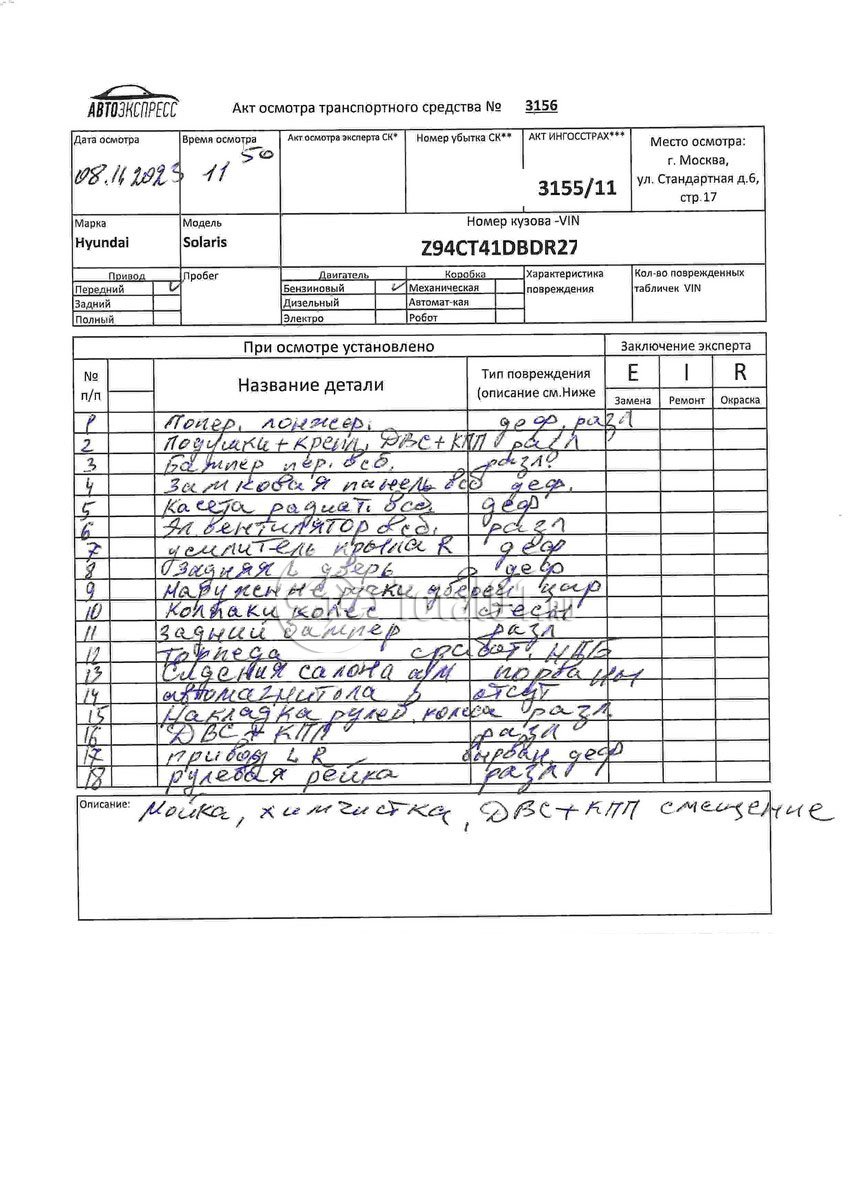 АВТОЭКСПРЕСС
Акт осмотра транспортного средства № 3156
Дата осмотра
08.11 2023
Время осмотра
11 50
Акт осмотра эксперта СК*
Номер убытка СК**
АКТ ИНГОССТРАХ***
3155/11
Место осмотра:
г. Москва,
ул. Стандартная д.6,
стр.17
Марка
Hyundai
Модель
Solaris
Номер кузова -VIN
Z94CT41DBDR27
Привод
Передний
Задний
Полный
Пробег
Двигатель
Бензиновый
Дизельный
Электро
Коробка
Механическая
Автомат-кая
Робот
Характеристика
повреждения
Кол-во поврежденных
табличек VIN
При осмотре установлено
Заключение эксперта
№
п/п
Название детали
Тип повреждения
(описание см.Ниже
E I R
Замена Ремонт Окраска
1 Лонжер. деф. разл
2 Подушки + креп. ДВС+КПП разл
3 Бампер пер. всб. разл
4 Замковая панель всб деф.
5 Касета радиат. всб. деф
6 Эл.вентилятор всб. разл
7 усилитель крыла R деф
8 Задняя L дверь деф
9 наружен ручки дверей цар
10 Колпаки колес
11 Задний бампер разл
12 Торпеда
13 Сидения салона а/м порваны
14 автомагнитола отсут
15 Накладка рулев. колеса разл
16 ДВС + КПП разл
17 привод L R вырван, деф
18 рулевая рейка разл
Описание: Мойка, химчистка, ДВС+КПП смещение